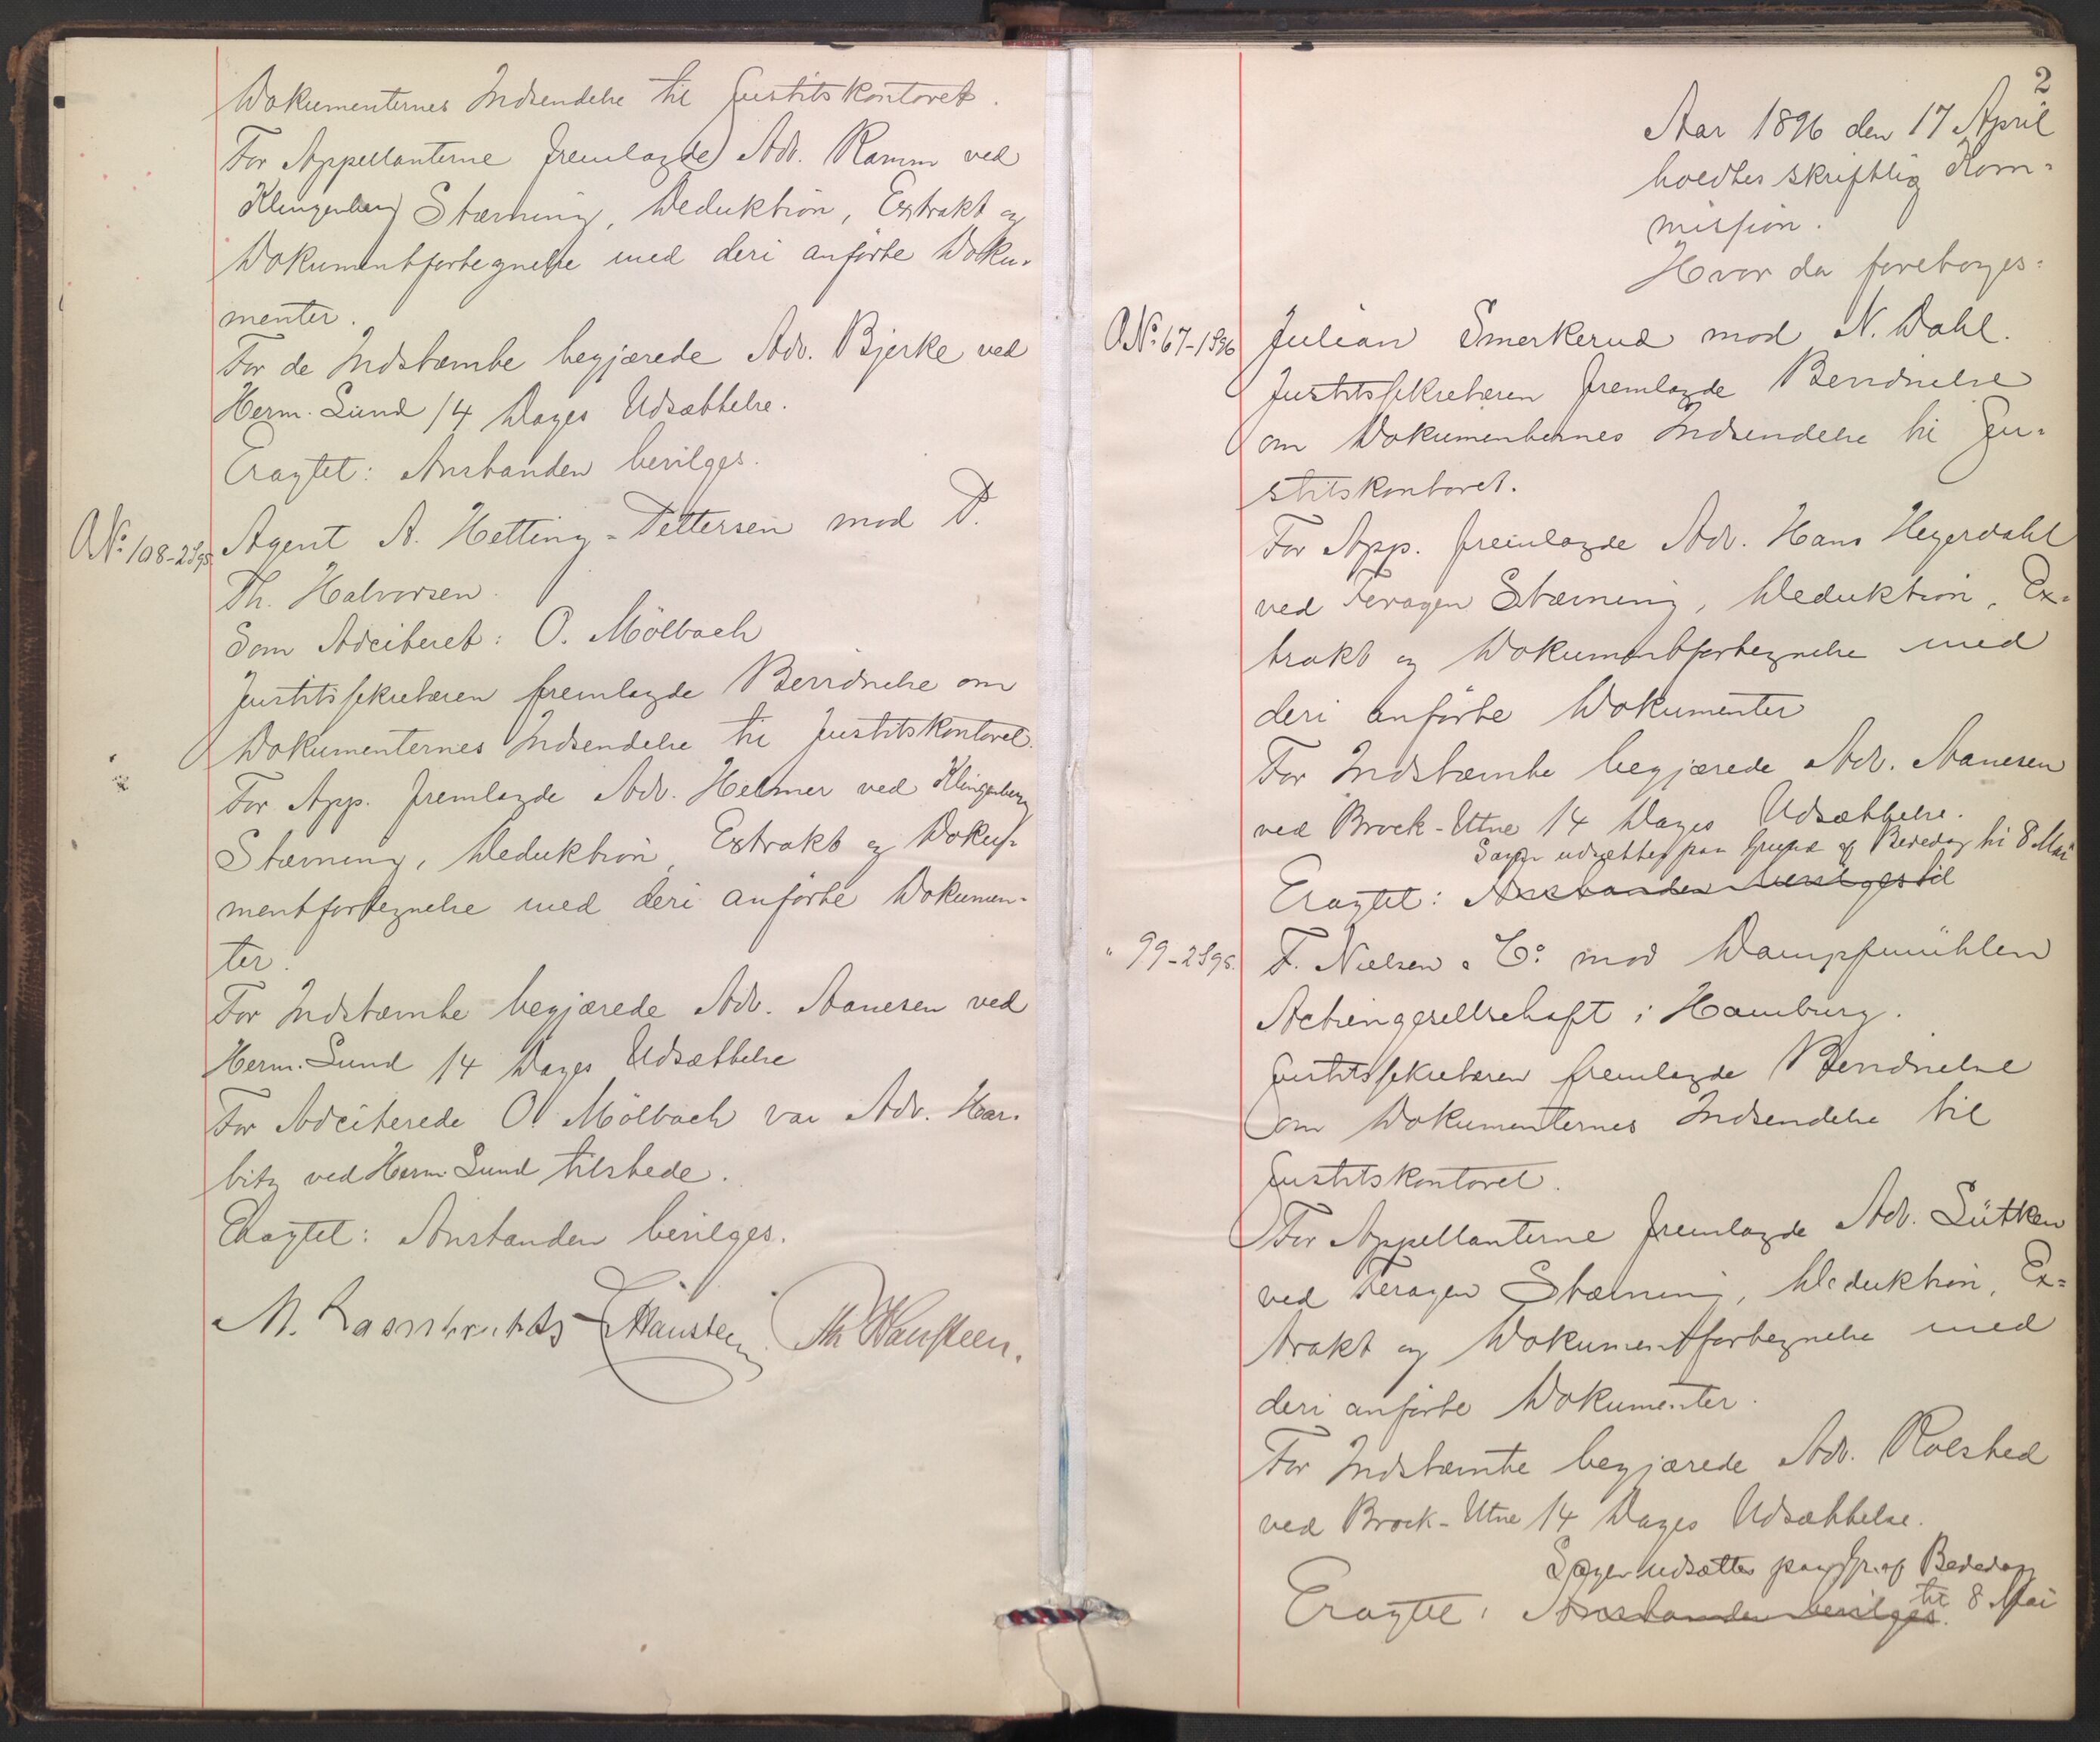 Dokumenternes Indsendelse til Justitskontoret.
For Appellanterne fremlagde Adv. Ramm ved
Klingenberg Stævning, Deduktion, Extrakt og
Dokumentfortegnelse med deri anførte Doku-
menter.
For de Indstævnte begjærede Adv. Bjerke ved
Herm. Lund 14 Dages Udsættelse.
Eragtet: Anstanden bevilges.
A No. 108-2/95 Agent A. Hetting-Pettersen mod P.
Th. Halvorsen.
Som Adciteret: O. Mölbach
Justitssekretæren fremlagde Bevidnelse om
Dokumenternes Indsendelse til Justitskontoret.
For App. fremlagde Adv. Helmer ved Klingenberg
Stævning, Deduktion, Extrakt og Doku-
mentfortegnelse med deri anførte Dokumen-
ter.
For Indstævnte begjærede Adv. Aanesen ved
Herm. Lund 14 Dages Udsættelse
For Adciterede O. Mölbach var Adv. Har-
bitz ved Herm. Lund tilstede.
Eragtet: Anstanden bevilges.
Th. Hansteen.
2
Aar 1896 den 17 April
holdtes skriftlig Kom-
mission.
Hvor da foretoges:
A No. 67-1/96 Julian Smerkerud mod N. Dahl.
Justitssekretæren fremlagde Bevidnelse
om Dokumenternes Indsendelse til Ju-
stitskontoret.
For App. fremlagde Adv. Hans Heyerdahl
ved Feragen Stævning, Deduktion, Ex-
trakt og Dokumentfortegnelse med
deri anførte Dokumenter
For Indstævnte begjærede Adv. Aanesen
ved Brock-Utne 14 Dages Udsættelse.
Sagen udsættes paa Grund af Bededag til 8 Mai
Eragtet: Anstanden bevilges til
" 99-2/95. F. Nielsen & Co. mod Dampfmühlen
Actiengesellschaft i Hamburg.
Justitssekretæren fremlagde Bevidnelse
om Dokumenternes Indsendelse til
Justitskontoret.
For Appellanterne fremlagde Adv. Lütken
ved Feragen Stævning, Deduktion, Ex-
trakt og Dokumentfortegnelse med
deri anførte Dokumenter.
For Indstævnte begjærede Adv. Rolsted
ved Brock-Utne 14 Dages Udsættelse.
Sagen udsættes paa Gr. af Bededag
til 8 Mai
Eragtet: Anstanden bevilges.